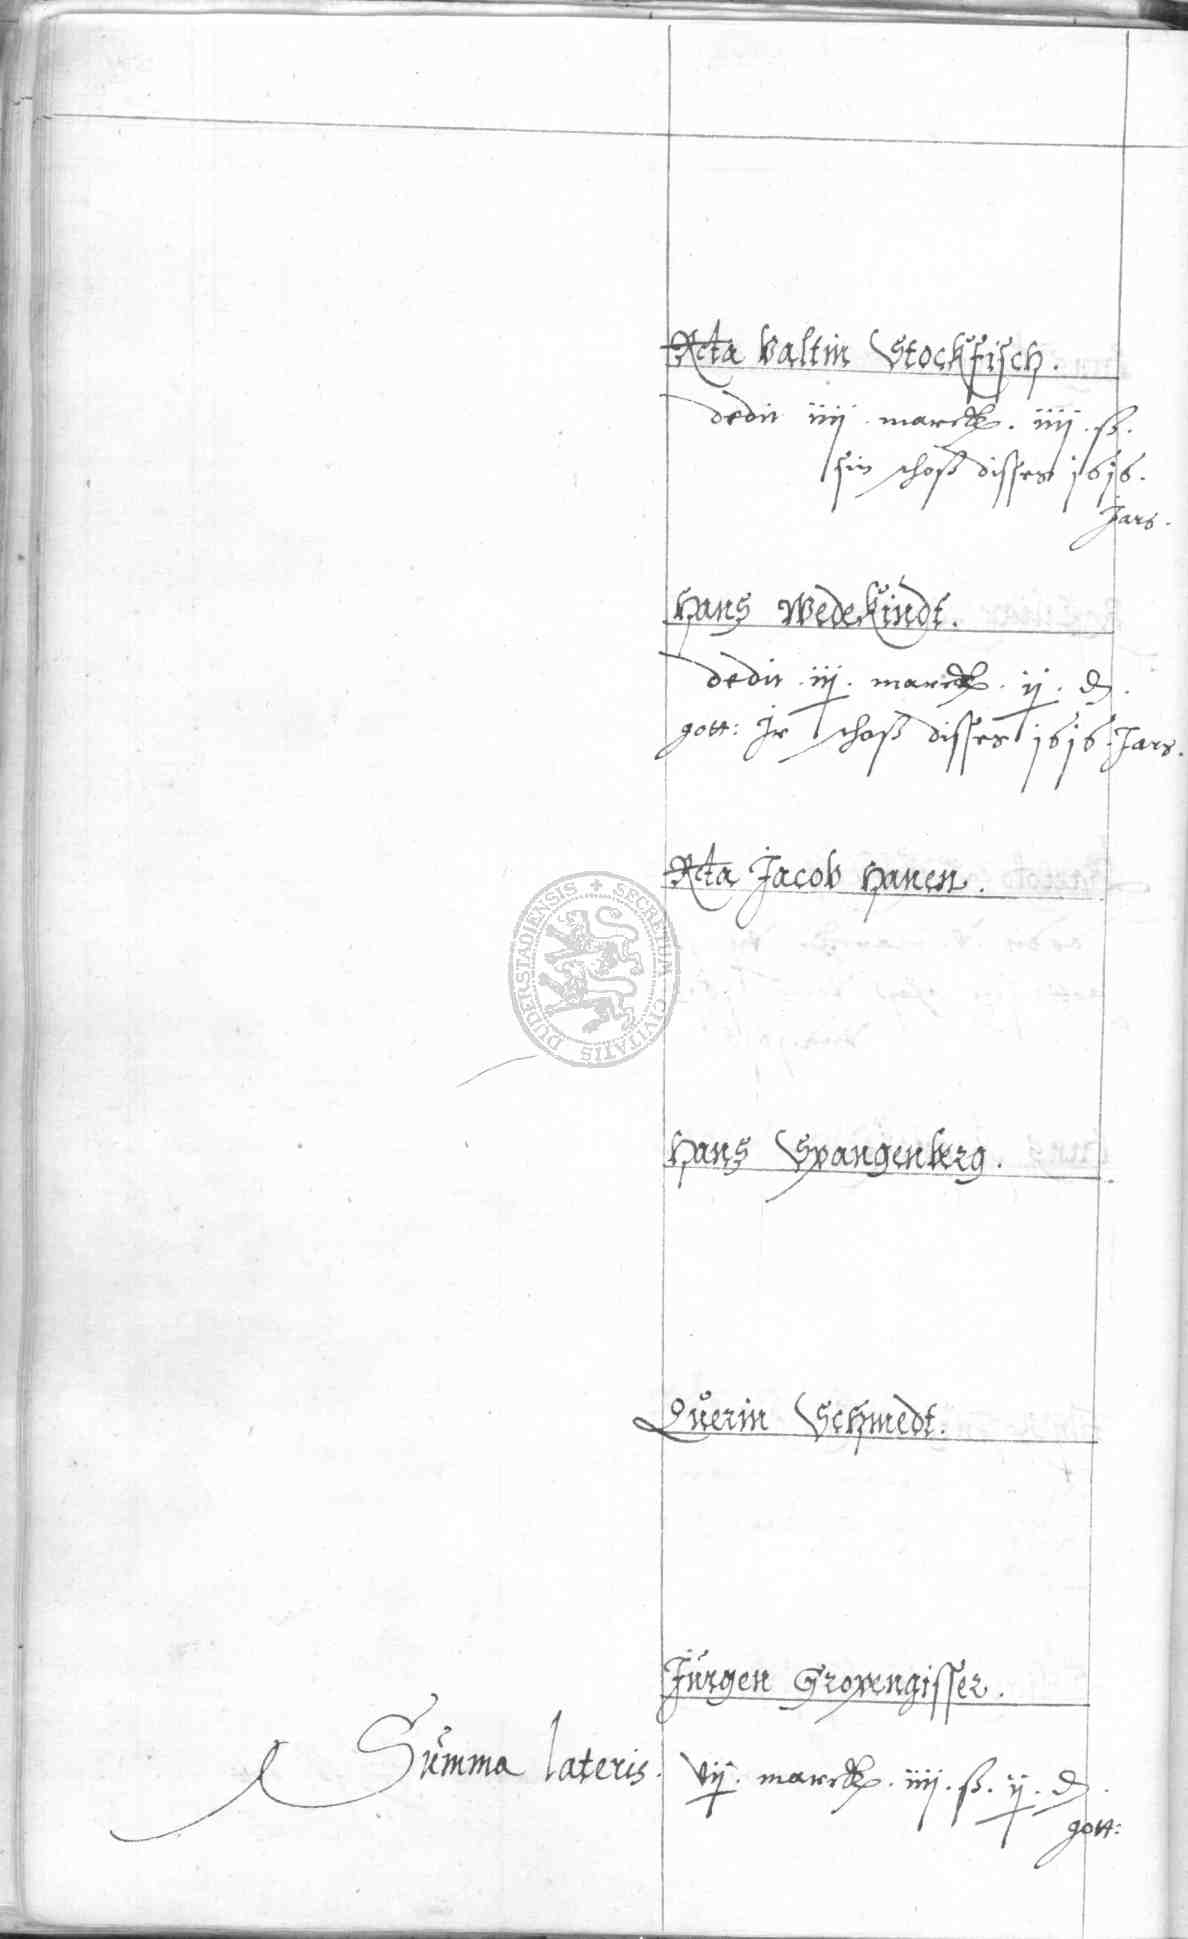 Rcta Valtin Stockfisch.
dedit iiij marck. iiij. ß.
sin schoß disses 1616.
Jars.
Hans Wedekindt.
dedit. iij. marck. ij. d.
gott: Jr schoß disses 1616. Jars.
Rcta Jacob Hanen.
SECRETUM CIVITATIS DUDERSTADIENSIS
Hans Spangenberg.
Querin Schmedt.
Jürgen Gropengisser.
Summa lateris. vij. marck. iiij. ß. ij. d.
gott: